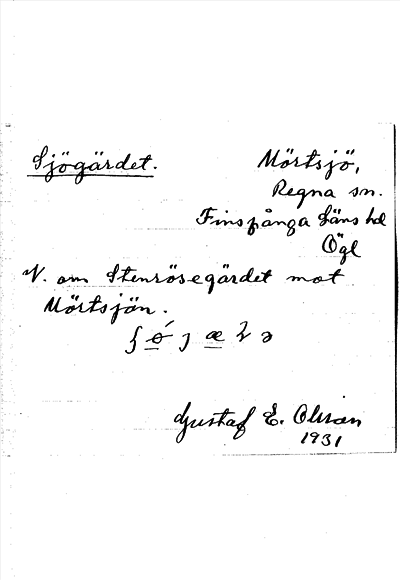 Sjögärdet.
Mörtsjö,
Regna sn.
Finspånga Läns hd
Ögl
V. om Stenrösegärdet mot
Mörtsjön.
Gustaf E. Olsson
1931